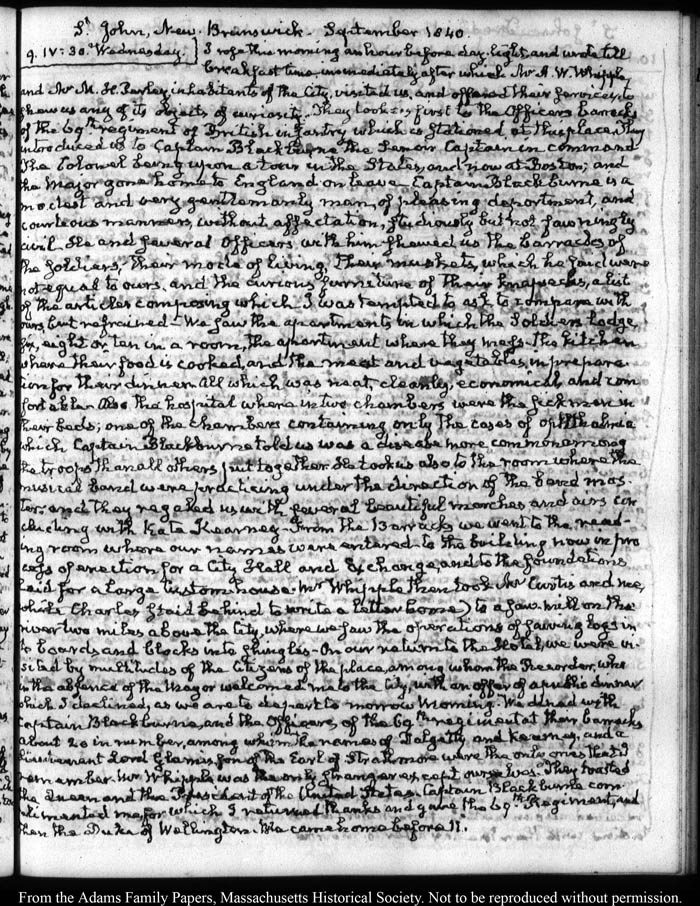 St John, New Brunswick. September 1840.
9. IV:30. Wednesday. I rose this morning an hour before day-light and wrote till
breakfast time immediately after which Mr A. W. Whipple,
and Mr M. H. Perley inhabitants of the City, visited us, and offered their services to
shew us any of its objects of curiosity. They took us first to the Officers barracks
of the 69th regiment of British infantry which is stationed at this place. They
introduced us to Captain Blackburne the Senior Captain in command
The Colonel being upon a tour in the States, and now at Boston; and
the Major gone home to England on leave. Captain Blackburne is a
modest and very gentlemanly man, of pleasing deportment, and
courteous manners, without affectation, studiously but not fawningly
civil. He and several Officers with him shewed us the barracks of
the soldiers, their mode of living, their muskets, which he said were
not equal to ours, and the curious furniture of their knapsacks, a list
of the articles composing which I was tempted to ask to compare with
ours, but refrained— We saw the apartments in which the Soldiers lodge,
six, eight or ten in a room, the apartment where they mess. The kitchen
where their food is cooked, and the meat and vegetables, in prepara
tion for their dinner. All which was neat, cleanly, economical, and com
fortable. Also the hospital where in two chambers were the sick men in
their beds; one of the chambers containing only the cases of ophthalmia
which Captain Blackburne told us was a disease more common among
the troops than all others put together. He took us also to the room where the
musical band were practicing under the direction of the band mas-
ter and they regaled us with several beautiful marches and airs con
cluding with Kate Kearney. From the Barracks we went to the read-
ing room where our names were entered. to the building now in pro
cess of erection for a City Hall and Exchange, and to the foundations
laid for a large Custom house. Mr Whipple then took Mr Curtis and me,
while Charles staid behind to write a letter home) to a saw-mill on the
river two miles above the City, where we saw the operations of sawing logs in
to boards and blocks into shingles— On our return to the Hotel, we were vi-
sited by multitudes of the Citizens of the place, among whom the Recorder, who
in the absence of the Mayor welcomed me to the City, with an offer of a public dinner
which I declined, as we are to depart to morrow Morning. We dined with
Captain Blackburne, and the Officers, of the 69th regiment at their barracks
about 20 in number, among whom the names of and Kearney, and a
Lieutenant Lord Glamis, son of the Earl of Strathmore were the only ones that I
remember. Mr Whipple was the only stranger except ourselves. They toasted
the Queen and the President of the United States. Captain Blackburne com-
plimented me, for which I returned thanks and gave the 69th Regiment, and
then the Duke of Wellington. We came home before 11.
From the Adams Family Papers, Massachusetts Historical Society. Not to be reproduced without permission.